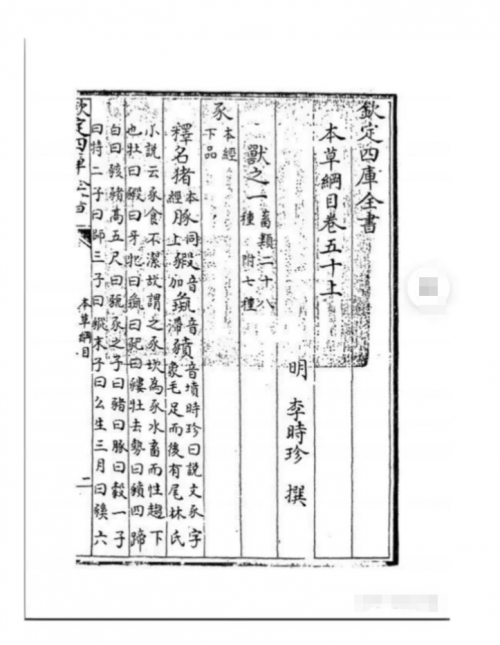 欽定四庫全書
本草綱目卷五十上
明 李時珍 撰
獸之一畜類二十八種 附七種
豕本經下品
釋名猪本經豚同上豭音加彘音滯豶音墳時珍曰說文豕字象毛足而後有尾林氏
小說云豕食不潔故謂之豕坎為豕水畜而性趨下
也牡曰豭曰牙牝曰彘曰豝曰䝏牡去勢曰豶四蹄
白曰豥猪高五尺曰豕之子曰豬曰豚曰豰一子
曰特二子曰師三子曰豵末子曰么生三月曰豯六
欽定四庫全書
本草綱目